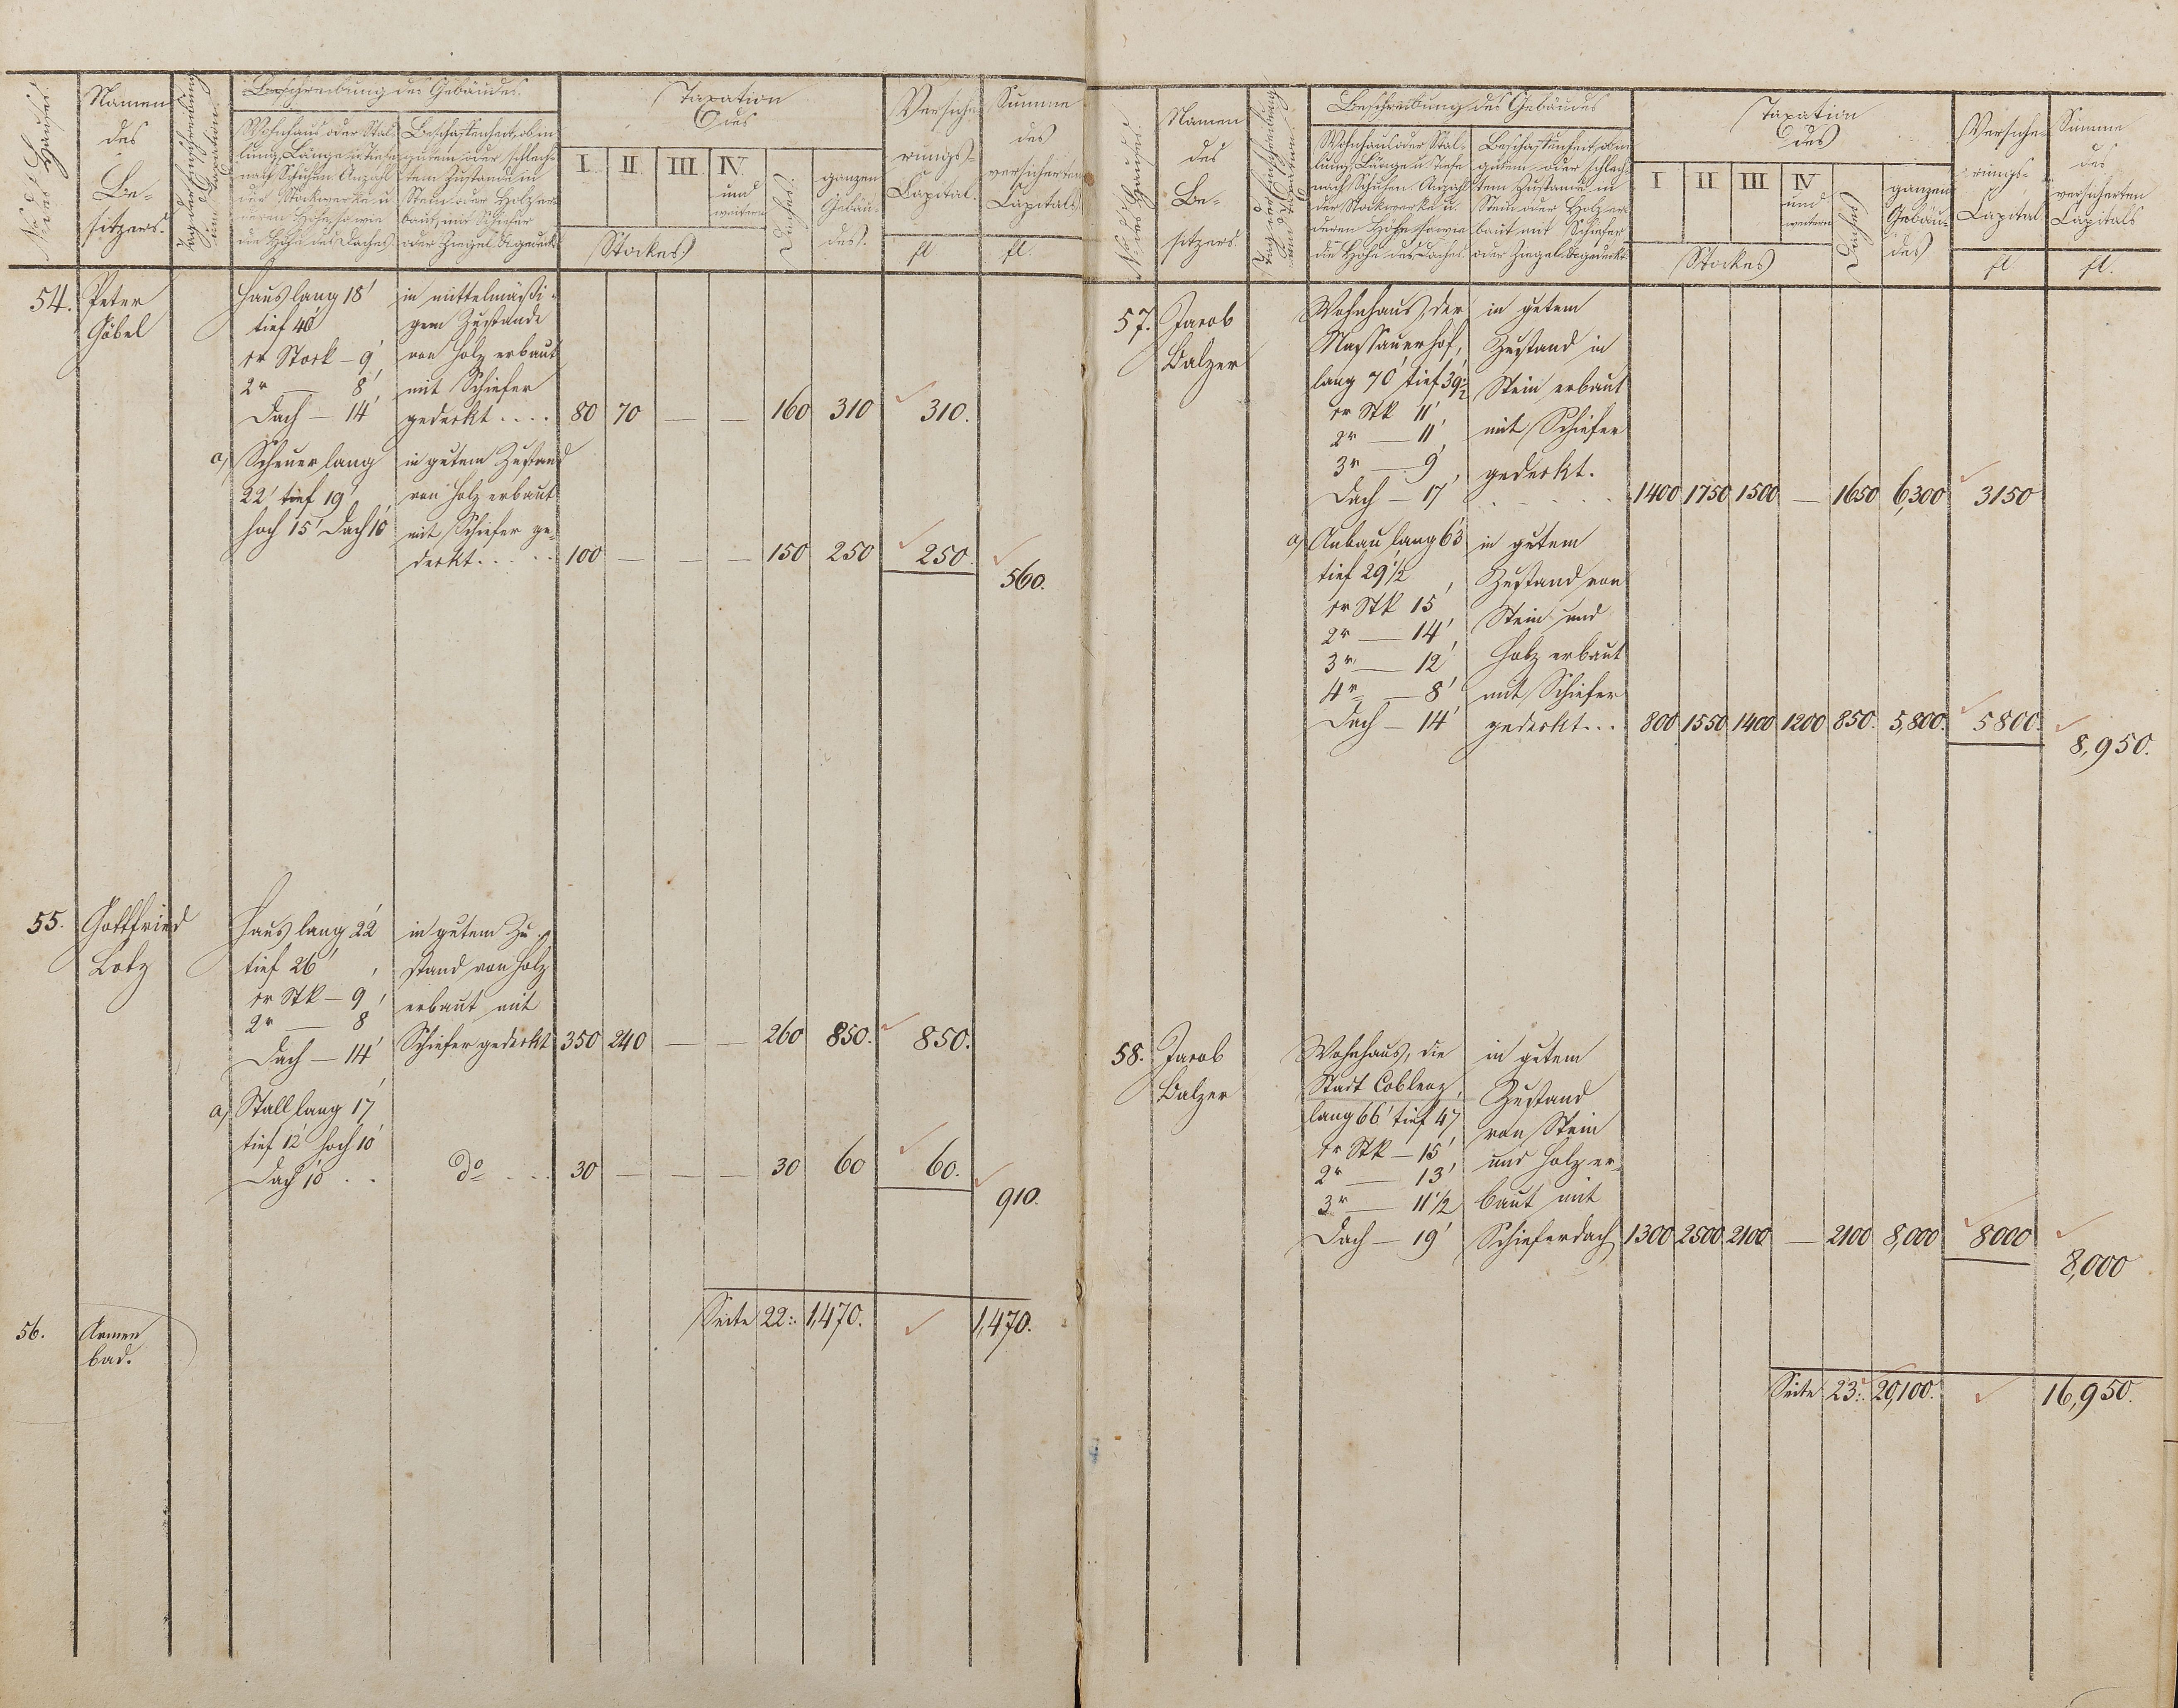 No des Hauses.
Namen
des
Be-
sitzers.
Tag der Einschreibung
und Taxation.
Beschreibung des Gebäudes.
Wohnhaus oder Stal-
lung, Länge u. Tiefe
nach Schuhen. Anzahl
der Stockwerke u.
deren Höhe sowie
die Höhe des Daches
Beschaffenheit, ob in
gutem oder schlech-
tem Zustande, in
Stein oder Holz er-
baut, mit Schiefer
oder Ziegel gedeckt.
Taxation
des
I. II. III. IV.
und
weitern
Stockes
Daches.
ganzen
Gebäu-
des.
Versiche-
rungs-
Capital.
fl
Summe
des
versicherten
Capitals
fl.
54. Peter
Göbel
Haus lang 18'
tief 40'
1r Stock – 9'
2r — 8'
Dach – 14'
in mittelmäßi-
gem Zustande
von Holz erbaut
mit Schiefer
gedeckt . . . . 80 70 — — 160 310 310.
a) Scheuer lang
22' tief 19'
hoch 15' Dach 10'
in gutem Zustand
von Holz erbaut
mit Schiefer ge-
deckt . . . . 100 — — — 150 250 250.
560.
55. Gottfried
Lotz
Haus lang 22'
tief 26'
1r Stk – 9'
2r — 8
Dach – 14'
in gutem Zu-
stand von Holz
erbaut mit
Schiefer gedeckt 350 240 — — 260 850. 850.
a) Stall lang 17'
tief 12' hoch 10'
Dach 10' . . do . . . 30 — — — 30 60 60.
910.
Seite 22: 1,470. 1,470.
56. Armen
bad.
No des Hauses.
Namen
des
Be-
sitzers.
Tag der Einschreibung
und Taxation.
Beschreibung des Gebäudes
Wohnhaus oder Stal-
lung, Länge u. Tiefe
nach Schuhen. Anzahl
der Stockwerke u.
deren Höhe sowie
die Höhe des Daches.
Beschaffenheit, ob in
gutem oder schlech-
tem Zustande, in
Stein oder Holz er-
baut mit Schiefer
oder Ziegel gedeckt.
Taxation
des
I II III IV
und
weitern
Stockes
Daches
ganzen
Gebäu-
des
Versiche-
rungs-
Capital
fl
Summe
des
versicherten
Capitals
fl.
57. Jacob
Balzer
Wohnhaus, der
Nassauerhof,
lang 70' tief 39 1/2
1r Stk 11'
2r — 11'
3r — 9'
Dach – 17'
in gutem
Zustand in
Stein erbaut
mit Schiefer
gedeckt.
. . . . 1400 1750 1500 — 1650 6,300 3150
a) Anbau lang 63'
tief 29 1/2
1r Stk 15'
2r — 14'
3r — 12'
4r — 8'
Dach – 14'
in gutem
Zustand von
Stein und
Holz erbaut
mit Schiefer
gedeckt . . . 800 1550 1400 1200 850. 5,800. 5800.
8,950.
58. Jacob
Balzer
Wohnhaus, die
Stadt Coblenz,
lang 66' tief 47'
1r Stk – 15'
2r — 13'
3r — 11 1/2
Dach – 19'
in gutem
Zustand
von Stein
und Holz er-
baut mit
Schieferdach 1300 2500 2100 — 2100 8,000 8000
8,000
Seite 23: 20,100. 16,950.